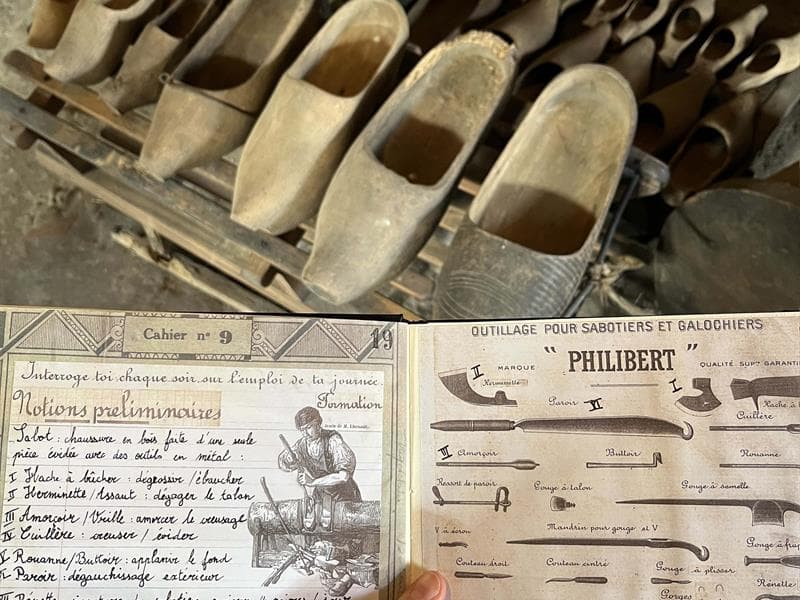 Cahier nº 9
19
Interroge toi chaque soir sur l'emploi de ta journée.
Notions préliminaires
Formation
Sabot : chaussure en bois faite d'une seule
pièce évidée avec des outils en métal :
I Hache à bûcher : dégrossir/ébaucher
II Herminette/Assaut : dégager le talon
III Amorçoir/Vrille : amorcer le creusage
IV Cuillère : creuser/évider
V Rouanne/Buttoir : applanir le fond
VI Paroir : dégauchissage extérieur
OUTILLAGE POUR SABOTIERS ET GALOCHIERS
MARQUE "PHILIBERT" QUALITÉ SUPre GARANTIE
II
Herminette
I
Hache à
Paroir VI
Cuillère
III Amorçoir
Buttoir
Rouanne
Ressort de paroir
Gouge à talon
Gouge à semelle
V à écrou
Mandrin pour gouge et V
Couteau droit
Couteau cintré
Gouge à plisser
Gorges
Rénette